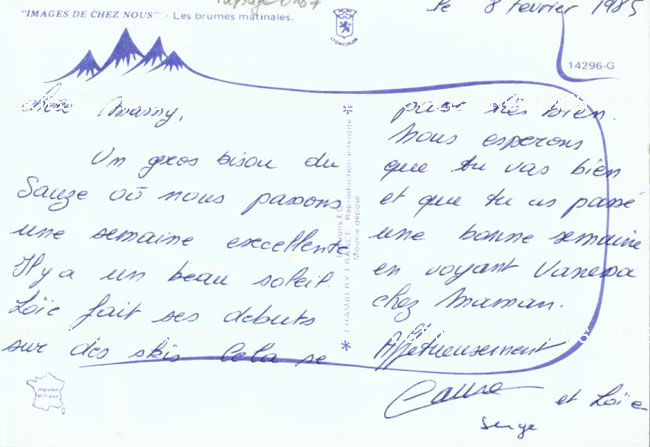 le 8 février 1985
"IMAGES DE CHEZ NOUS" - Les brumes matinales.
14296-G
Chère Mamy,
Un gros bisou du
Sauze où nous passons
une semaine excellente
Il y a un beau soleil.
Loïc fait ses débuts
sur des skis Cela se
passe très bien.
Nous espérons
que tu vas bien
et que tu as passé
une bonne semaine
en voyant Vanessa
chez Maman.
Affectueusement
et Loïc
Serge
CHAMBERY FRANCE Reproduction interdite
Modèle déposé